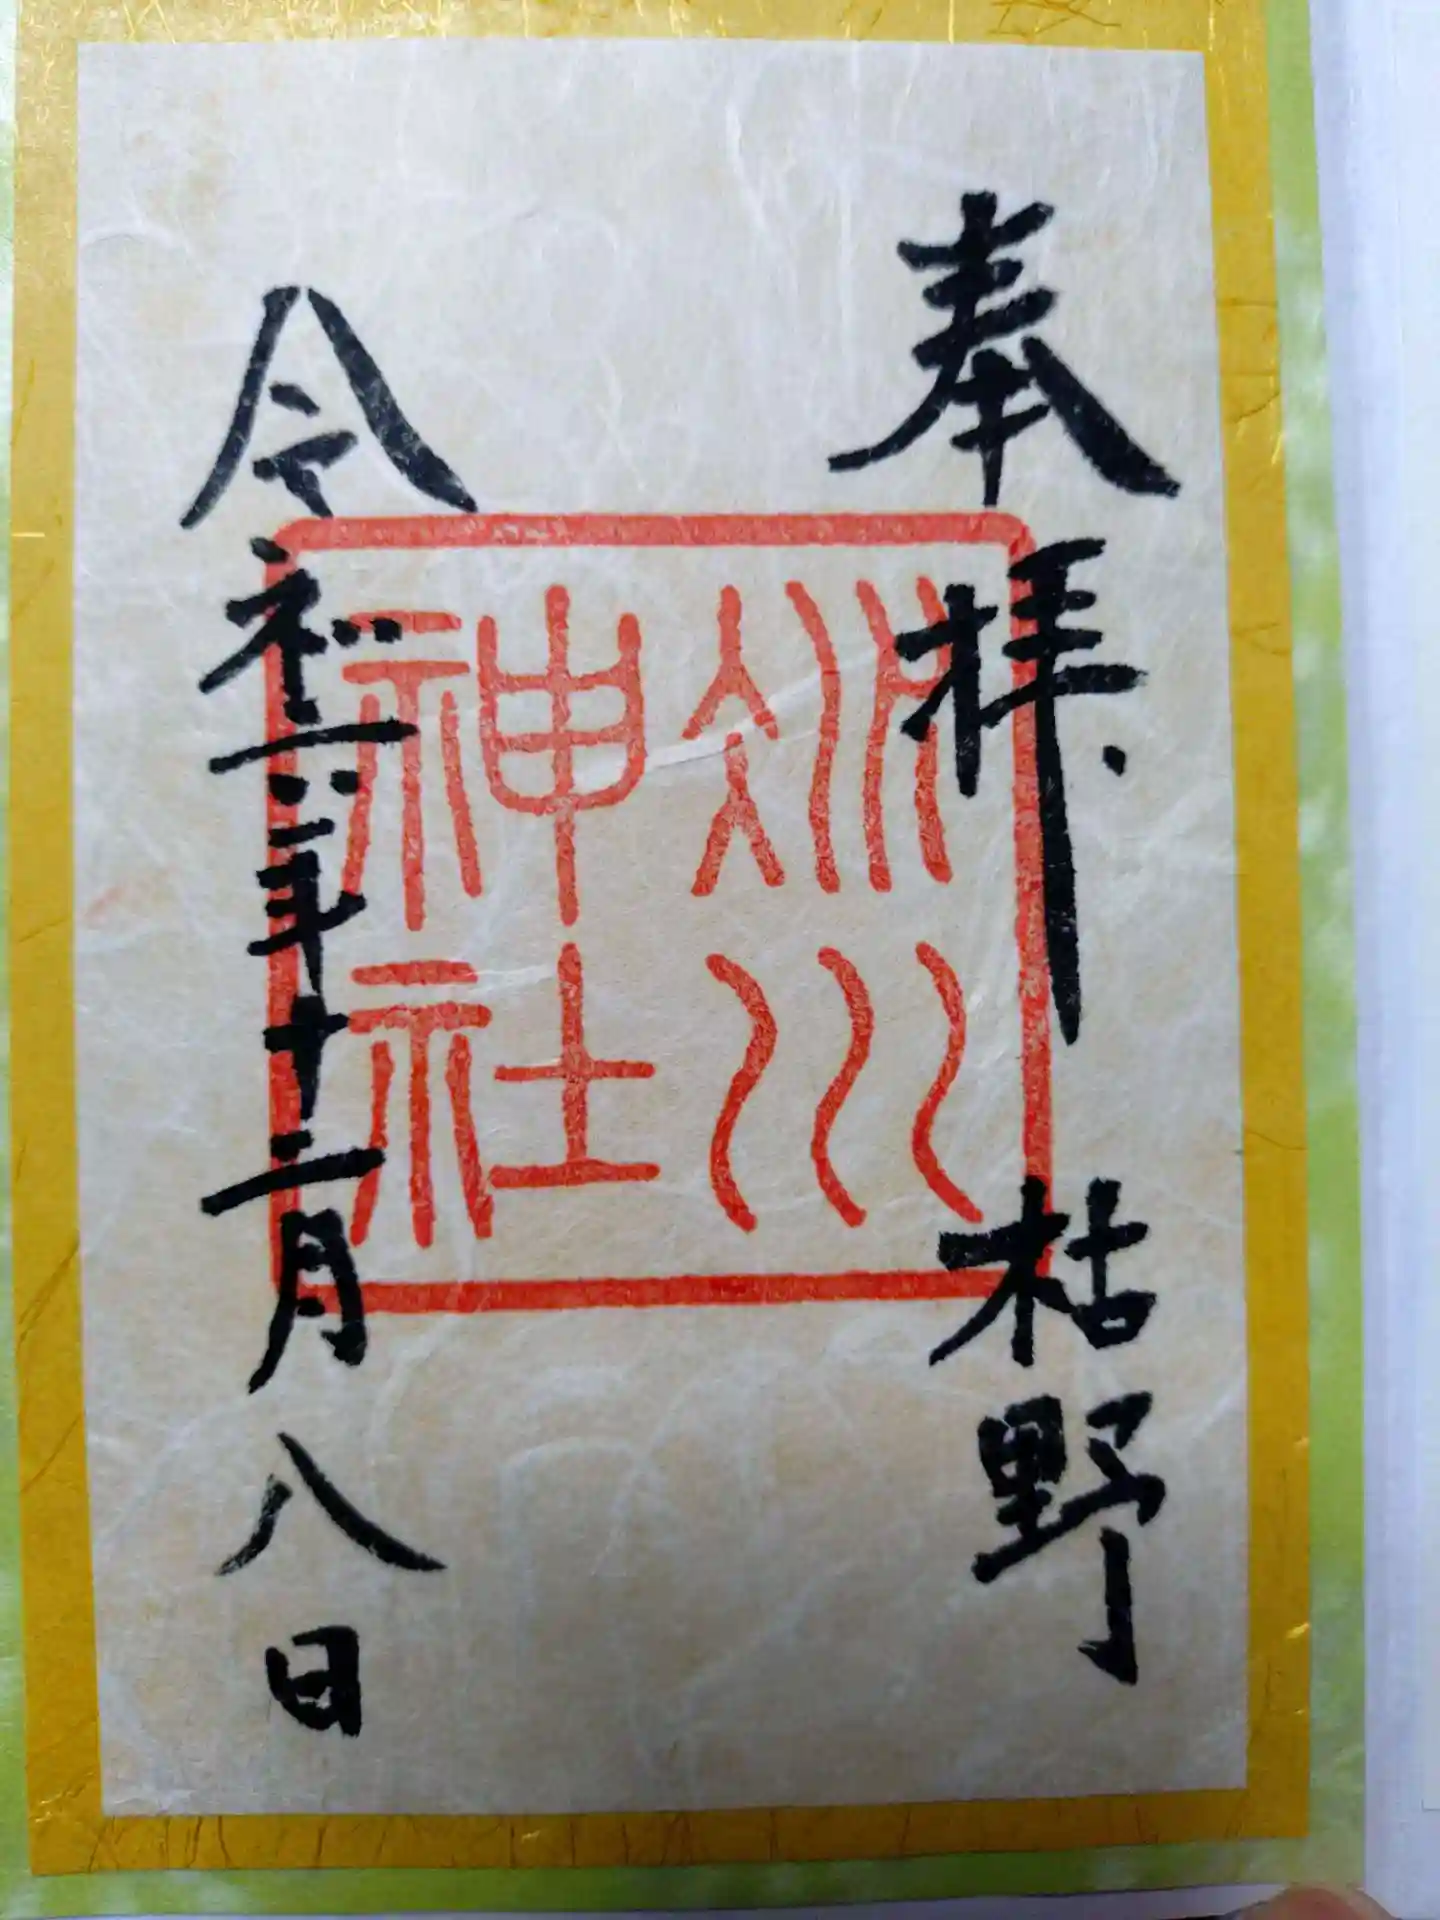 奉拝 枯野
氷川
神社
令和六年十二月八日